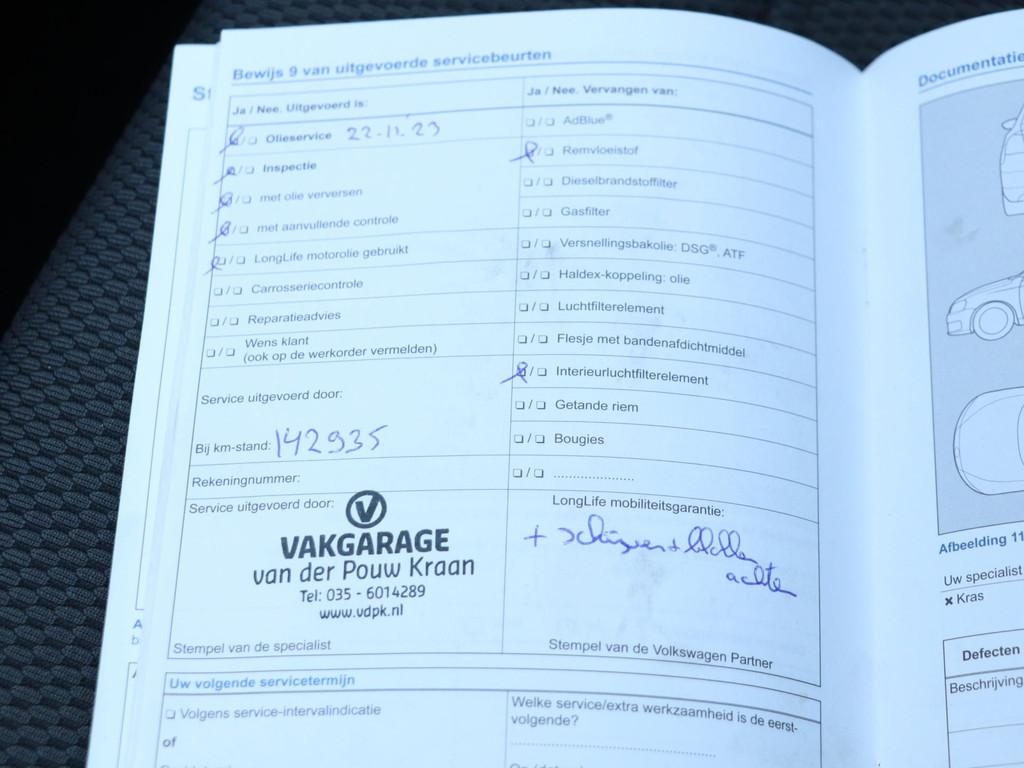 Bewijs 9 van uitgevoerde servicebeurten
Ja / Nee. Uitgevoerd is:
❏ / ❏ Olieservice 22-11-'23
❏ / ❏ Inspectie
❏ / ❏ met olie verversen
❏ / ❏ met aanvullende controle
❏ / ❏ LongLife motorolie gebruikt
❏ / ❏ Carrosseriecontrole
❏ / ❏ Reparatieadvies
❏ / ❏ Wens klant
(ook op de werkorder vermelden)
Service uitgevoerd door:
Bij km-stand: 142935
Rekeningnummer:
Service uitgevoerd door:
V
VAKGARAGE
van der Pouw Kraan
Tel: 035 - 6014289
www.vdpk.nl
Stempel van de specialist
Ja / Nee. Vervangen van:
❏ / ❏ AdBlue®
❏ / ❏ Remvloeistof
❏ / ❏ Dieselbrandstoffilter
❏ / ❏ Gasfilter
❏ / ❏ Versnellingsbakolie: DSG®, ATF
❏ / ❏ Haldex-koppeling: olie
❏ / ❏ Luchtfilterelement
❏ / ❏ Flesje met bandenafdichtmiddel
❏ / ❏ Interieurluchtfilterelement
❏ / ❏ Getande riem
❏ / ❏ Bougies
❏ / ❏ .....................
LongLife mobiliteitsgarantie:
+ schijven + blokken
achter
Stempel van de Volkswagen Partner
Uw volgende servicetermijn
❏ Volgens service-intervalindicatie
of
Welke service/extra werkzaamheid is de eerst-
volgende?
Documentatie
Afbeelding 11
Uw specialist
✗ Kras
Defecten
Beschrijving